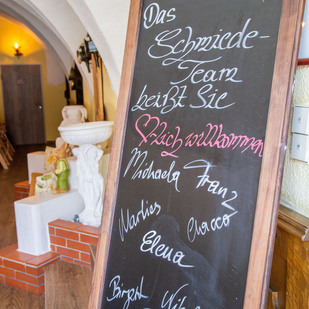 Das
Schmiede-
Team
heißt Sie
♡lich willkommen
Michaela Franz
Marlies Chacco
Elena
Birgit